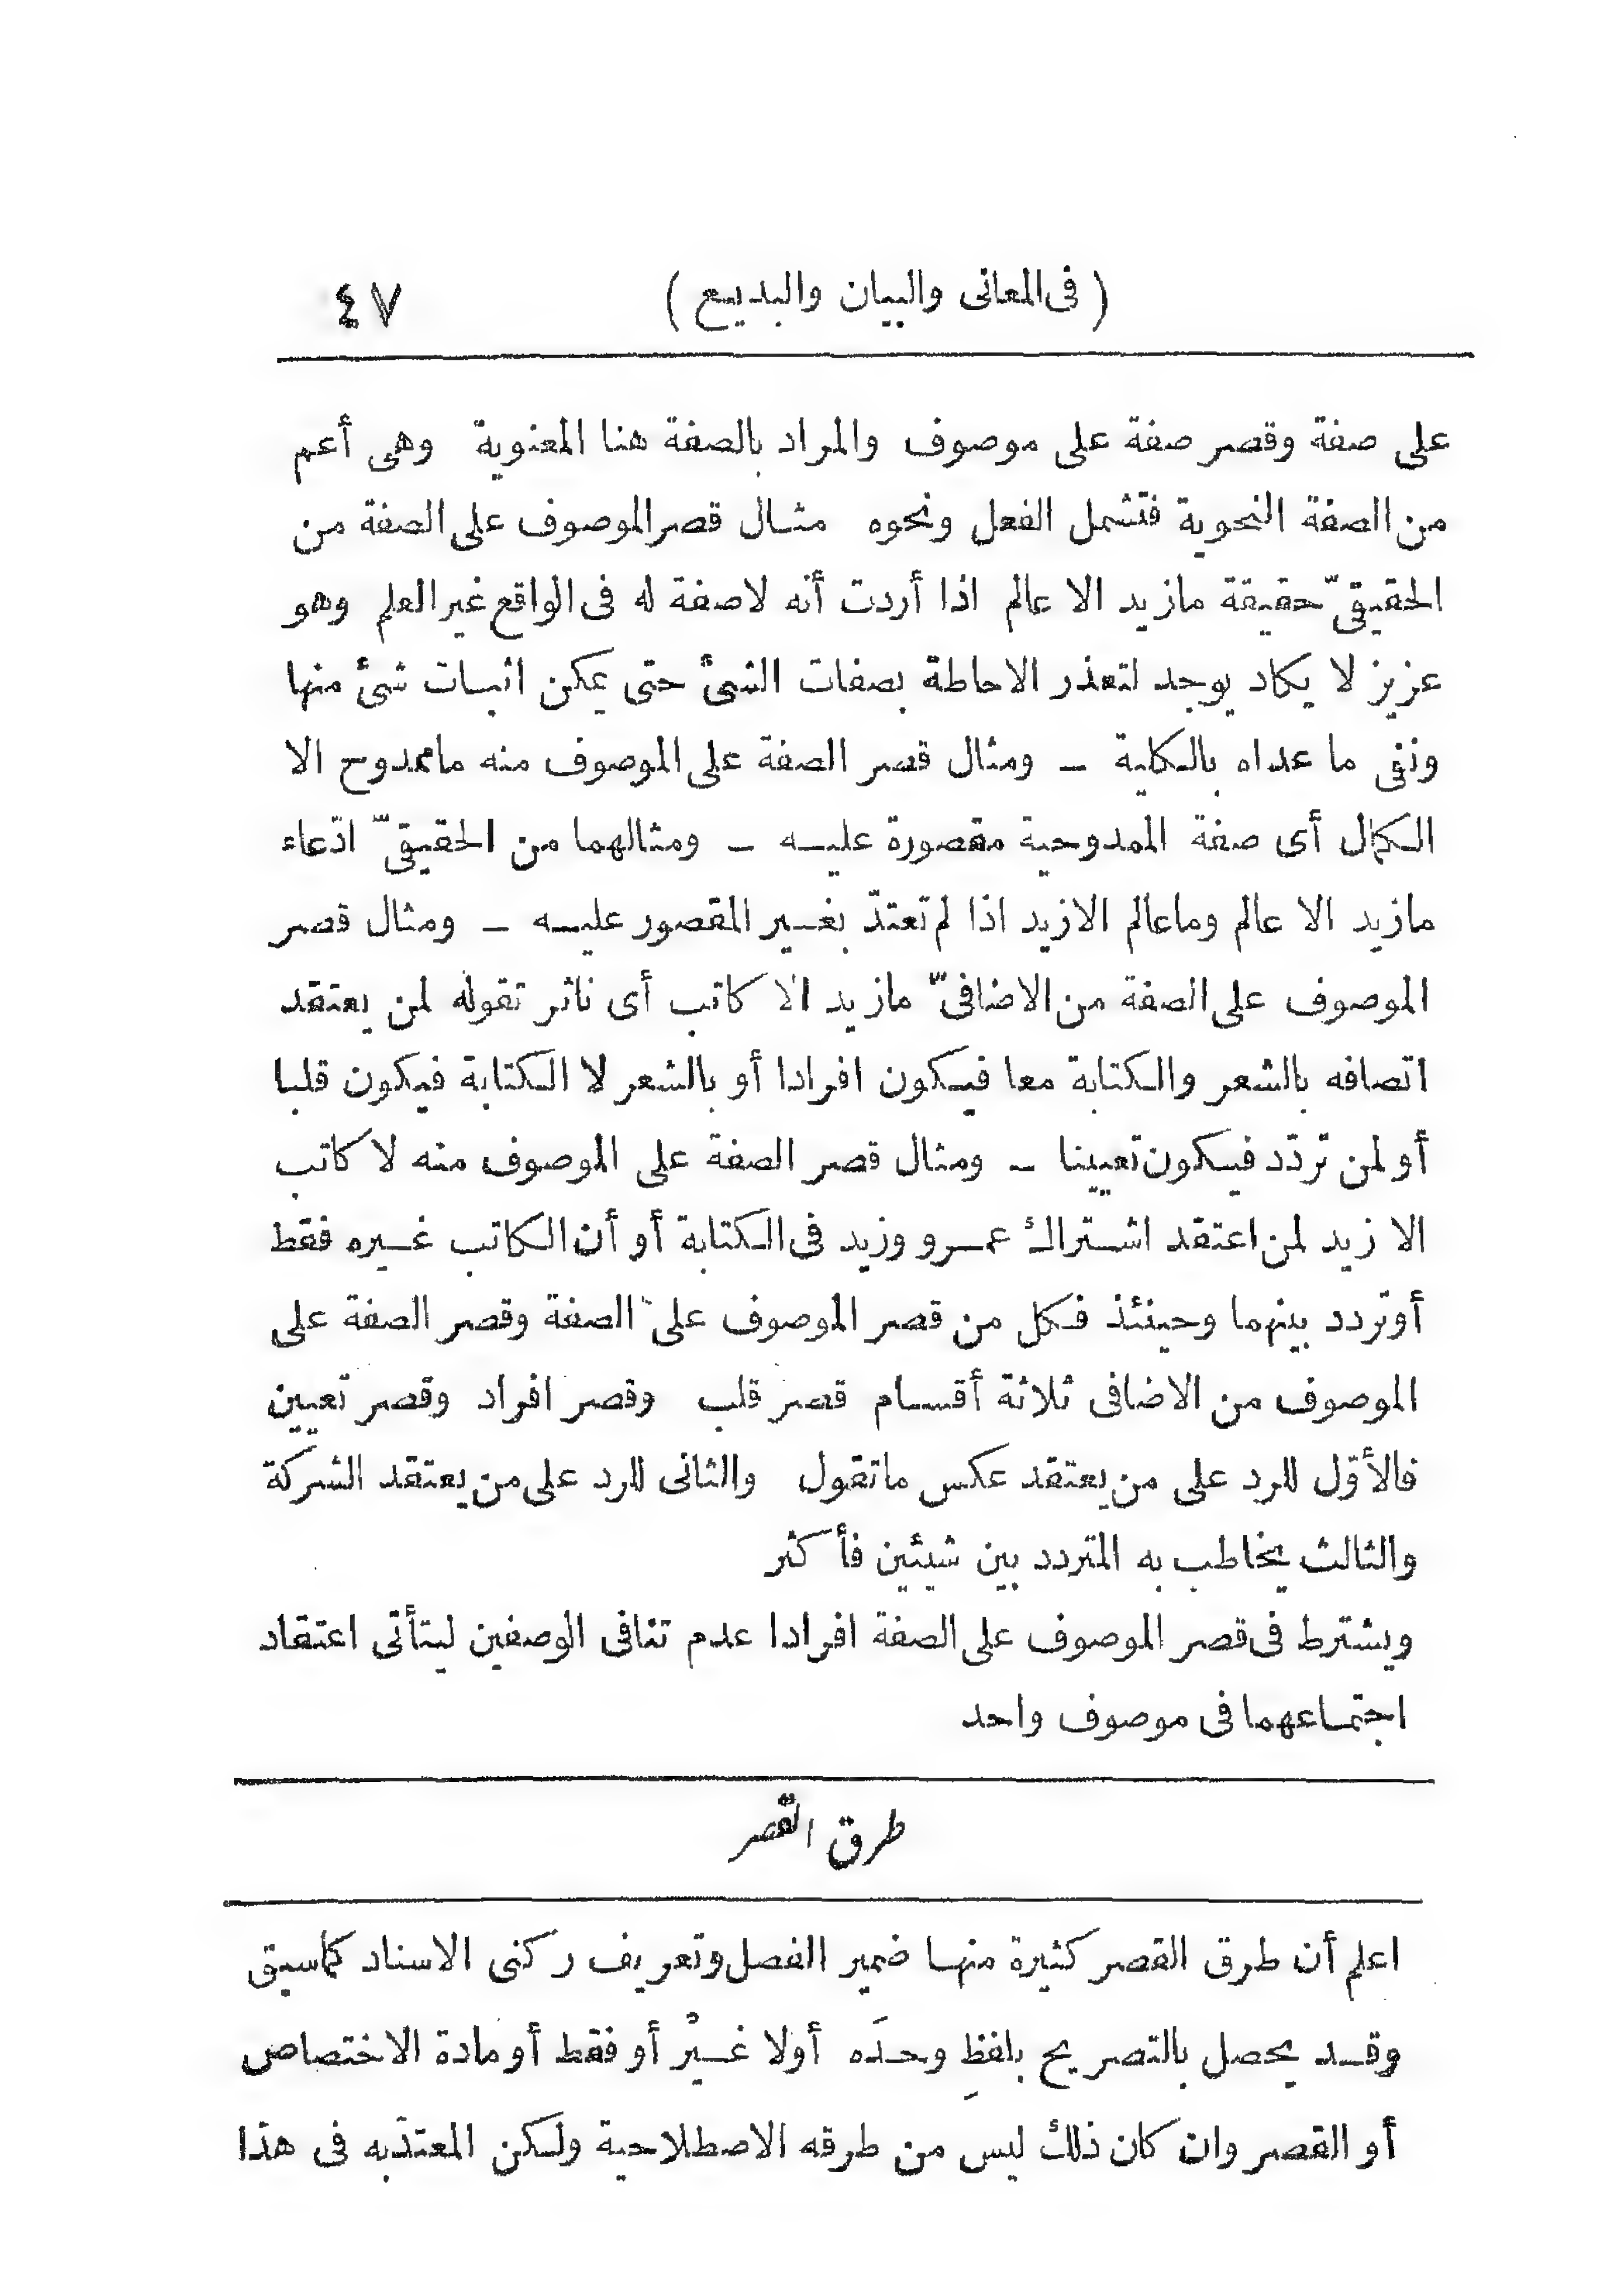 ( فى المعانى والبيان والبديع ) ٤٧
على صفة وقصر صفة على موصوف والمراد بالصفة هنا المعنوية وهى أعم
من الصفة النحوية فتشمل الفعل ونحوه مثال قصر الموصوف على الصفة من
الحقيقىّ حقيقة مازيد الا عالم اذا أردت أنه لاصفة له فى الواقع غير العلم وهو
عزيز لا يكاد يوجد لتعذر الاحاطة بصفات الشىء حتى يمكن اثبات شىء منها
ونفى ما عداه بالكلية ـ ومثال قصر الصفة على الموصوف منه ماممدوح الا
الكمال أى صفة الممدوحية مقصورة عليه ـ ومثالهما من الحقيقىّ ادّعاء
مازيد الا عالم وماعالم الازيد اذا لم تعتدّ بغير المقصور عليه ـ ومثال قصر
الموصوف على الصفة من الاضافىّ مازيد الا كاتب أى ناثر تقوله لمن يعتقد
اتصافه بالشعر والكتابة معا فيكون افرادا أو بالشعر لا الكتابة فيكون قلبا
أو لمن تردّد فيكون تعيينا ـ ومثال قصر الصفة على الموصوف منه لا كاتب
الا زيد لمن اعتقد اشتراك عمرو وزيد فى الكتابة أو أن الكاتب غيره فقط
أوتردد بينهما وحينئذ فكل من قصر الموصوف على الصفة وقصر الصفة على
الموصوف من الاضافى ثلاثة أقسام قصر قلب وقصر افراد وقصر تعيين
فالأوّل للرد على من يعتقد عكس ماتقول والثانى للرد على من يعتقد الشركة
والثالث يخاطب به المتردد بين شيئين فأكثر
ويشترط فى قصر الموصوف على الصفة افرادا عدم تنافى الوصفين ليتأتى اعتقاد
اجتماعهما فى موصوف واحد
طرق القصر
اعلم أن طرق القصر كثيرة منها ضمير الفصل وتعريف ركنى الاسناد كماسبق
وقد يحصل بالتصريح بلفظِ وحدَه أولا غيْر أو فقط أو مادة الاختصاص
أو القصر وان كان ذلك ليس من طرقه الاصطلاحية ولكن المعتدّ به فى هذا